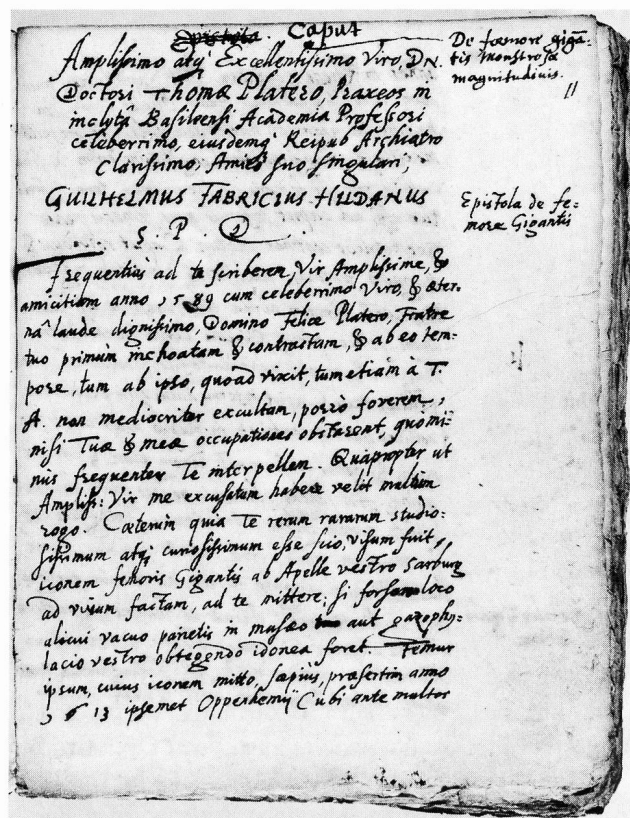 Caput
De fœmore gigā-
tis monstrosæ
magnitudinis.
11
Amplissimo atq; Excellentissimo Viro, DN.
Doctori Thomæ Platero, Praxeos in
inclytâ Basileensi Academia Professori
celeberrimo, eiusdemq; Reipub Archiatro
Clarissimo, Amico suo singulari,
GUILHELMUS FABRICIUS HILDANUS
S. P. D
Epistola de fe-
more Gigantis
Frequentius ad te scriberem, Vir Amplissime, &
amicitiam anno 1589 cum celeberrimo Viro, & æter-
nâ laude dignissimo, Domino Felice Platero, Fratre
tuo primum inchoatam & contractam, & ab eo tem-
pore, tum ab ipso, quoad vixit, tum etiam à T.
A. non mediocriter excultam, porrò foverem,
nisi Tuæ & meæ occupationes obstarent, quomi-
nus frequenter Te interpellem. Quapropter ut
Ampliss: Vir me excusatum habere velit
rogo. Cæterùm quia Te rerum rararum studio-
sissimum atq; curiosissimum esse scio, visum fuit,
iconem femoris Gigantis ab Apelle vestro Sarburg
ad vivum factam, ad te mittere; si forsan loco
alicui vacuo parietis in musæo aut gazophy-
lacio vestro obtegendo idonea foret. Femur
ipsum, cuius iconem mitto, sæpius, præsertim anno
1613 ipsemet Oppenhemij Cubi ante multos